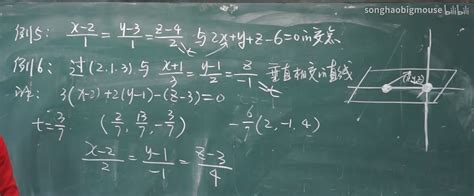 songhaobigmouse bilibili
例5: (x-2)/1 = (y-3)/1 = (z-4)/2 与 2x+y+z-6=0 的交点
例6: 过(2,1,3) 与 (x+1)/3 = (y-1)/2 = z/-1 垂直相交的直线
解: 3(x-2)+2(y-1)-(z-3)=0
t=3/7 (2/7, 13/7, -3/7) -6/7(2,-1,4)
(x-2)/2 = (y-1)/-1 = (z-3)/4